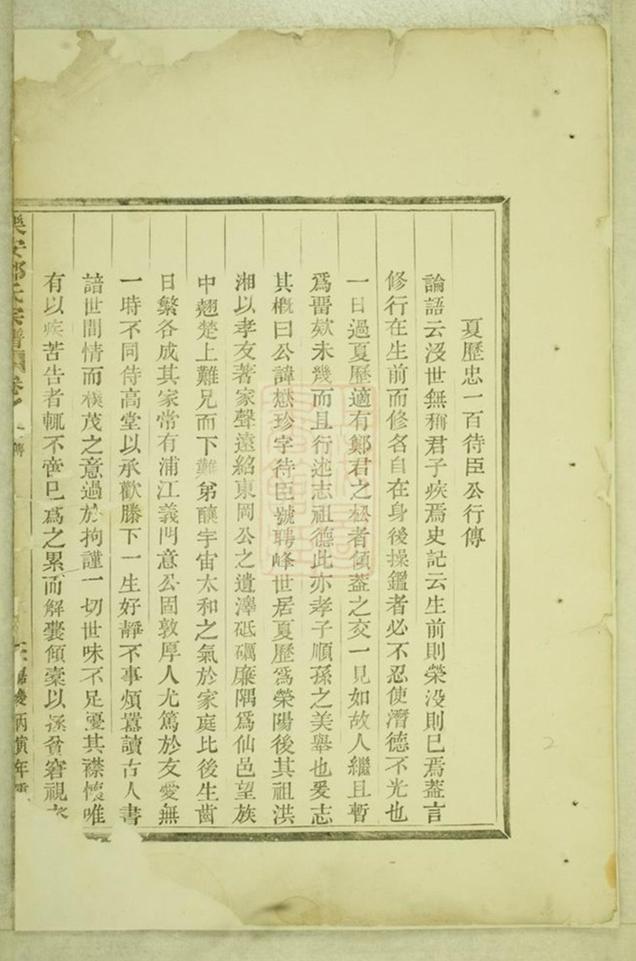 夏歷忠一百待臣公行傳
論語云沒世無稱君子疾焉史記云生前則榮沒則已焉蓋言
修行在生前而修名自在身後操鑑者必不忍使潛德不光也
一日過夏歷適有鄭君之松者傾葢之交一見如故人繼且暫
爲晋欵未幾而且行述志祖德此亦孝子順孫之美舉也爰志
其概曰公諱懋珍字待臣號聘峰世居夏歷爲榮陽後其祖洪
湘以孝友著家聲遠紹東岡公之遺澤砥礪廉隅爲仙邑望族
中翹楚上難兄而下難弟釀宇宙太和之氣於家庭比後生齒
日繁各成其家常有浦江義門意公固敦厚人尤篤於友愛無
一時不同侍高堂以承歡膝下一生好靜不事煩囂讀古人書
諳世間情而樸茂之意過於拘謹一切世味不足憂其襟懷唯
有以疾苦告者輒不啻已爲之累而解囊傾橐以拯貧窘視
樂安鄭氏宗譜 卷 傳 嘉慶丙寅年重